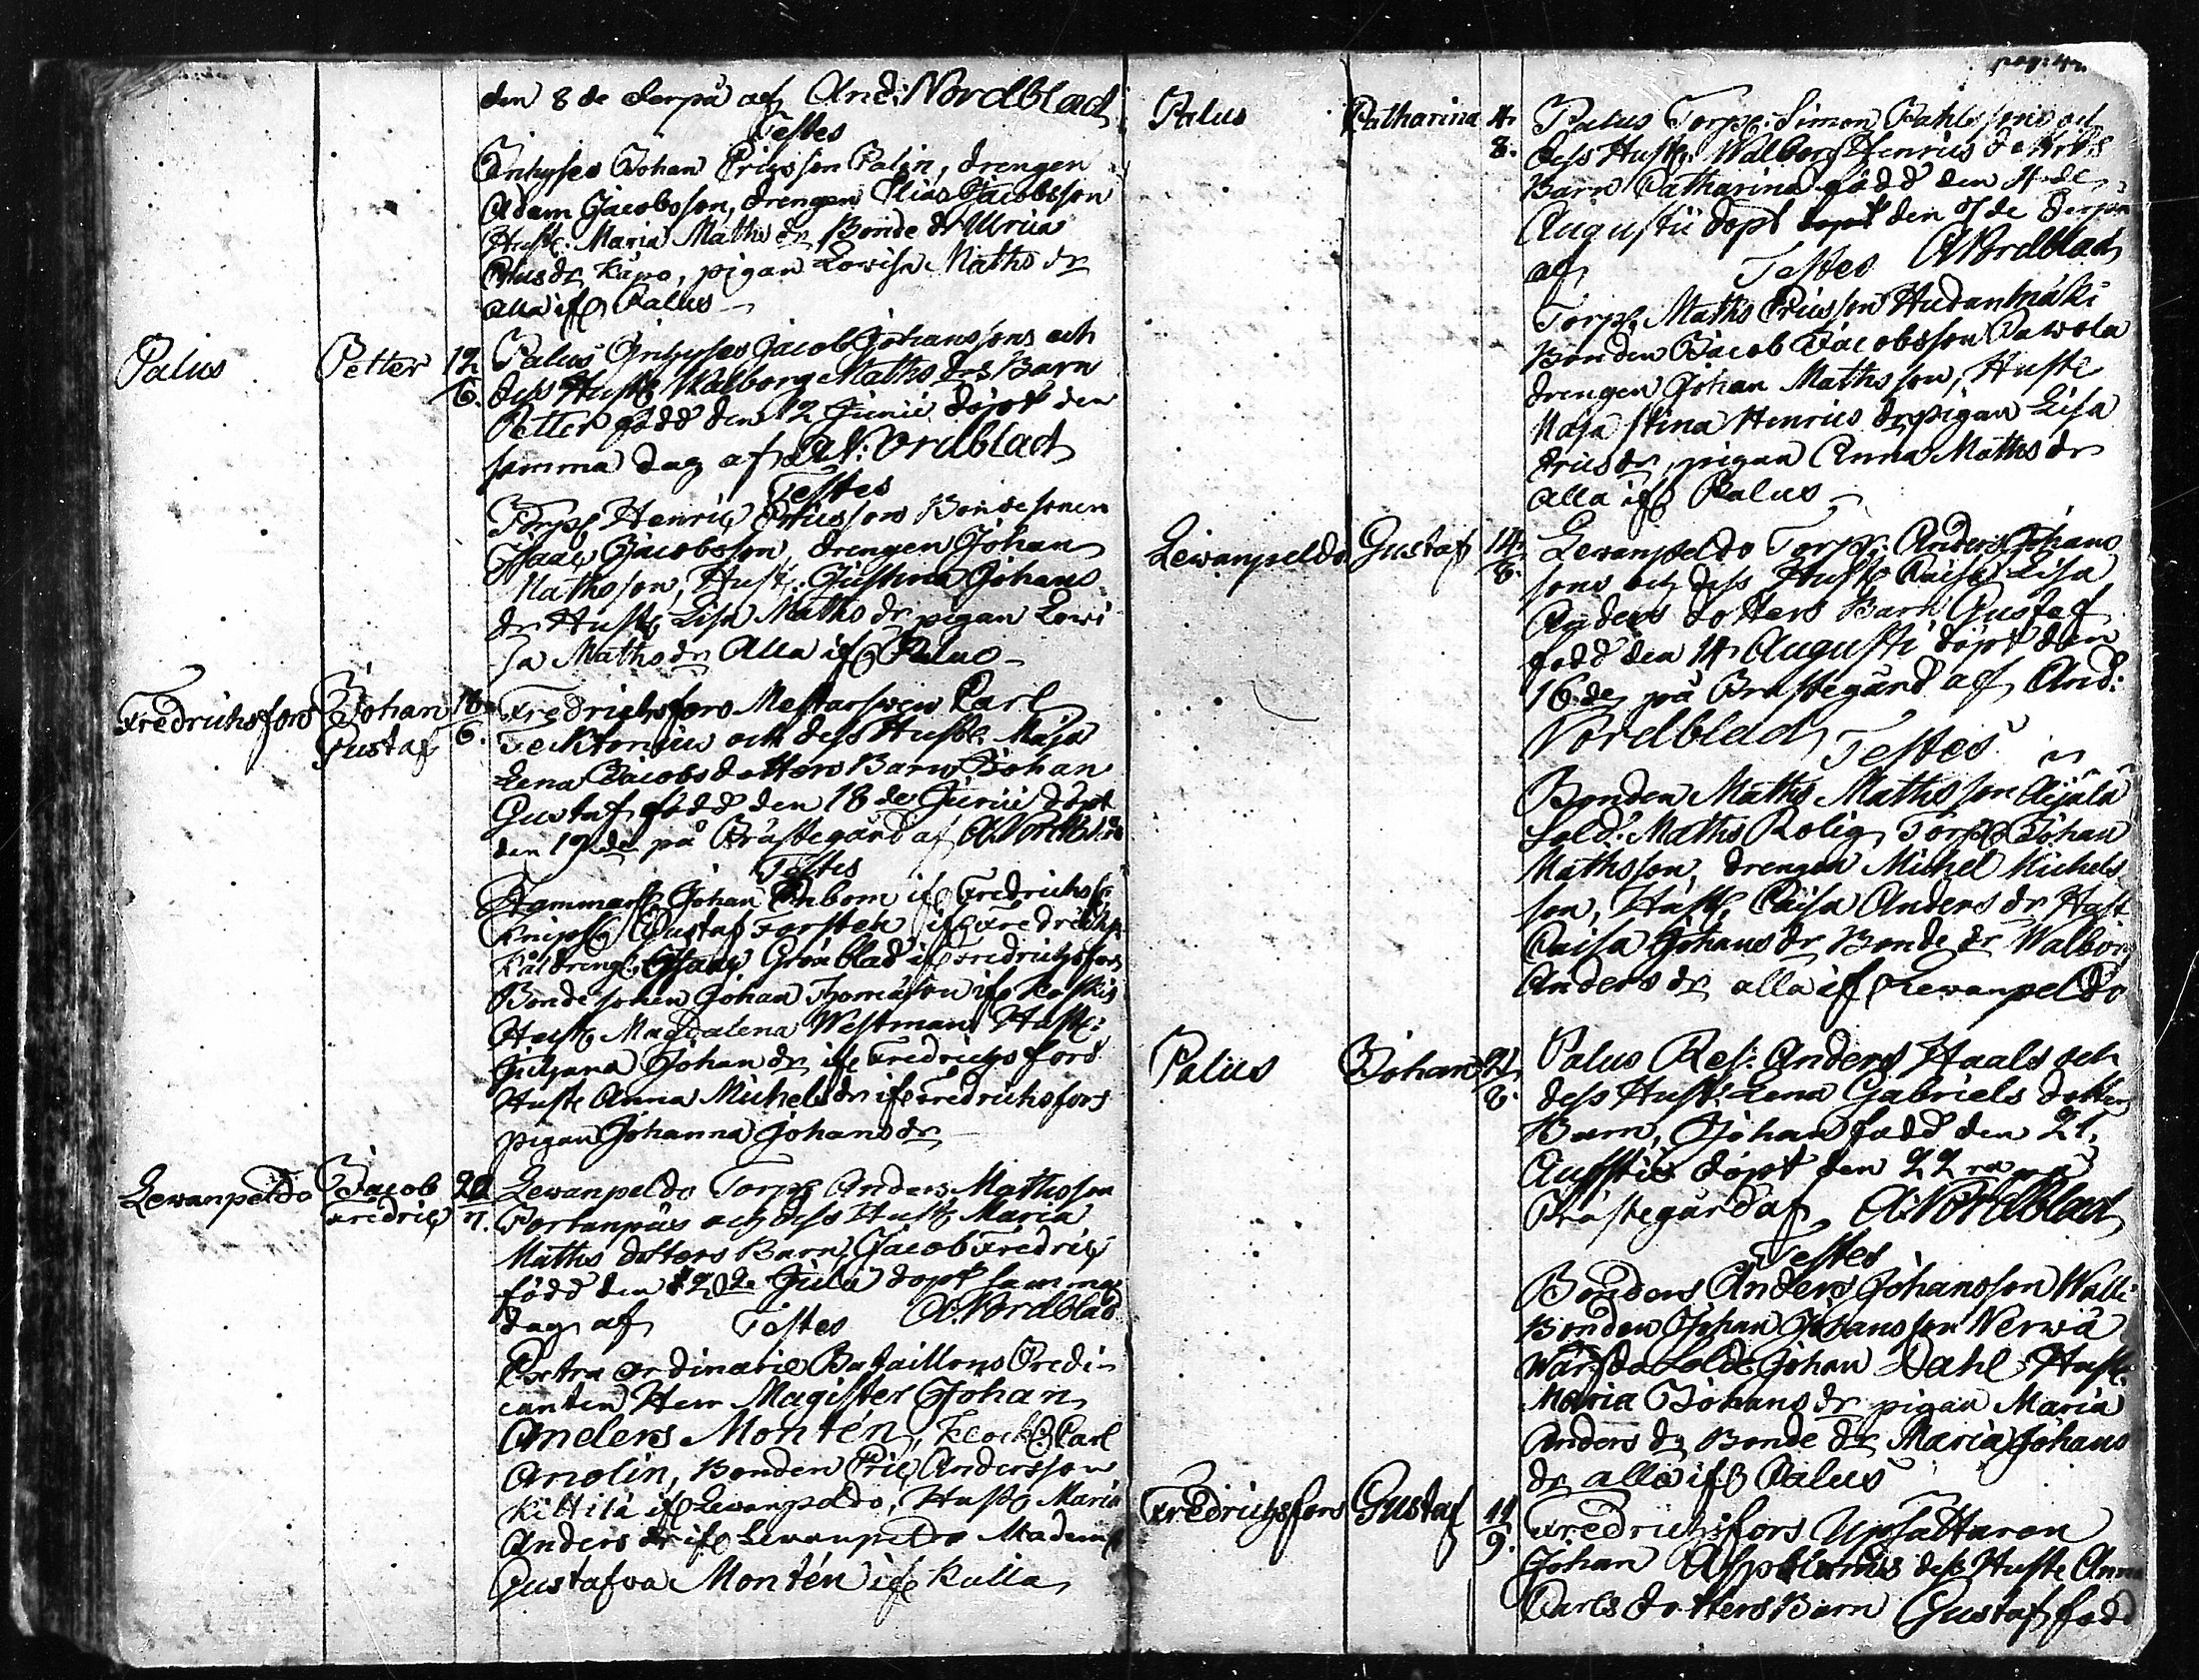 den 8de derpå af And: Nordblad
Testes
Inhyses Johan Ericsson Palin, drengen
Adam Jacobsson, drengen Elias Jacobsson
Hust: Maria Maths dr Bonde dr Ulrica
dr Kapo, pigan Lovisa Maths dr
alla if Palus
Palus Petter 12/6. Palus Inhyses Jacob Johanssons och
dess Hust Walborg Maths drs Barn
Petter född den 12 Junii döpt den
samma dag af A: Nordblad
Testes
Torp Henric Ericsson Bondesonen
Isaac Jacobsson, drengen Johan
Mathsson, Hust: Justina Johans
dr Hust Lisa Maths dr pigan Lovi
sa Maths dr Alla if Palus
Fredrichsfors Johan Gustaf 18/6. Fredrichsfors Mestarswen Carl
Tecktonius och dess Hust: Maja
Lena Jacobs dotters Barn Johan
Gustaf född den 18de Junii döpt
den 19de på Prästegård af A. Nordblad
Testes
Hammars Johan Enbom if Fredrichsf
Knips Gustaf Forsten if Fredrichsf
Kåldreng Isaac Grönblad if Fredrichsfors
Bondesonen Johan Thomasson if Koskis
Hust Magdalena Westman Hust:
Juliana Johans dr if Fredrichsfors
Hust Anna Michels dr if Fredrichsfors
pigan Johanna Johans dr
Lewanpeldo Jacob Fredric 22/7. Lewanpeldo Torp Anders Mathsson
och dess Hust Maria
Maths dotters Barn Jacob Fredric
född den 22de Julii döpt samma
dag af Testes A: Nordblad
Extra ordinarie Bataillons Predi-
canten Herr Magister Johan
Anders Montén, Klock: Carl
Amolin, Bonden Eric Andersson
Kittilä if Lewanpeldo, Hust Maria
Anders dr if Lewanpeldo Madem
Gustafva Montén if Kulla
pag: 47.
Palus Catharina 4/8. Palus Torp: Simon Pahlssons och
dess Hust: Walborg Henrics dotters
Barn Catharina född den 4de
Augustii döpt den 7de derpå
af Testes A Nordblad
Torp Maths Ericsson Hudanmäki
Bonden Jacob Jacobsson Pawola
drengen Johan Mathsson, Huste
Maja Stina Henrics dr pigan Lisa
Erics dr, pigan Anna Maths dr
alla if Palus
Lewanpeldo Gustaf 14/8. Lewanpeldo Torp: Anders Johans
sons och dess Hust Caisa Lisa
Anders dotters Barn Gustaf
född den 14 Augusti döpt den
16de på Prästegård af And:
Nordblad Testes
Bonden Maths Mathsson Äijälä
Sold: Maths Rolig, Torp Johan
Mathsson, drengen Michel Michels
son, Hust, Caisa Anders dr Hust
Caisa Johans dr Bonde dr Walborg
Anders dr alla if Lewanpeldo
Palus Johan 21/8. Palus Ref: Anders Haals och
dess Hust: Lena Gabriels dotters
Barn, Johan född den 21
Augstii döpt den 22ra på
Prästegård af A: Nordblad
Testes
Bonders Anders Johansson Walli
Bonden Johan Johansson Nerwä
Sold: Johan Dahl Hust:
Maria Johans dr pigan Maria
Anders dr Bonde dr Maria Johans
dr alla if Palus
Fredrichsfors Gustaf 11/9. Fredrichsfors Upsättaren
Johan dess Huste Anna
Carls dotters Barn Gustaf född